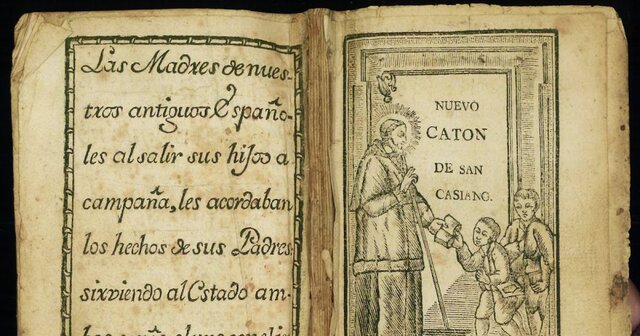 Las Madres de nues-
tros antiguos Españo-
les al salir sus hijos a
campaña, les acordaban
los hechos de sus Padres
sirviendo al Estado am-
NUEVO
CATON
DE SAN
CASIANO.